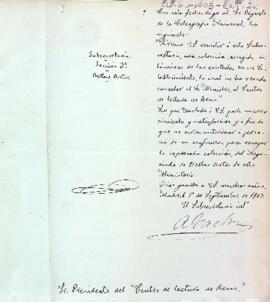 Subsecretaría
Sección 3ª
Bellas Artes
Con esta fecha digo al Sr. Deposito
de la Calcografia Nacional, lo
siguiente:
"Sirvase V.S. remitir á esta Subse-
cretaría, una colección escogida de
láminas de las existentes en ese Es-
tablecimiento, la cual se ha
concedido el Sr. Ministro, al Centro
de lectura de Reus."
Lo que traslado á V.S. para su
conocimiento y satisfacción y á fin de
que se sirva autorizar á persona
de su confianza, para recoger
la expresada colección, del Nego-
ciado de Bellas Artes de este
Ministerio.
Dios guarde á V.S. muchos años.
Madrid 1º de Septiembre de 1903
El Subsecretario
Sr. Presidente del "Centro de lectura de Reus."